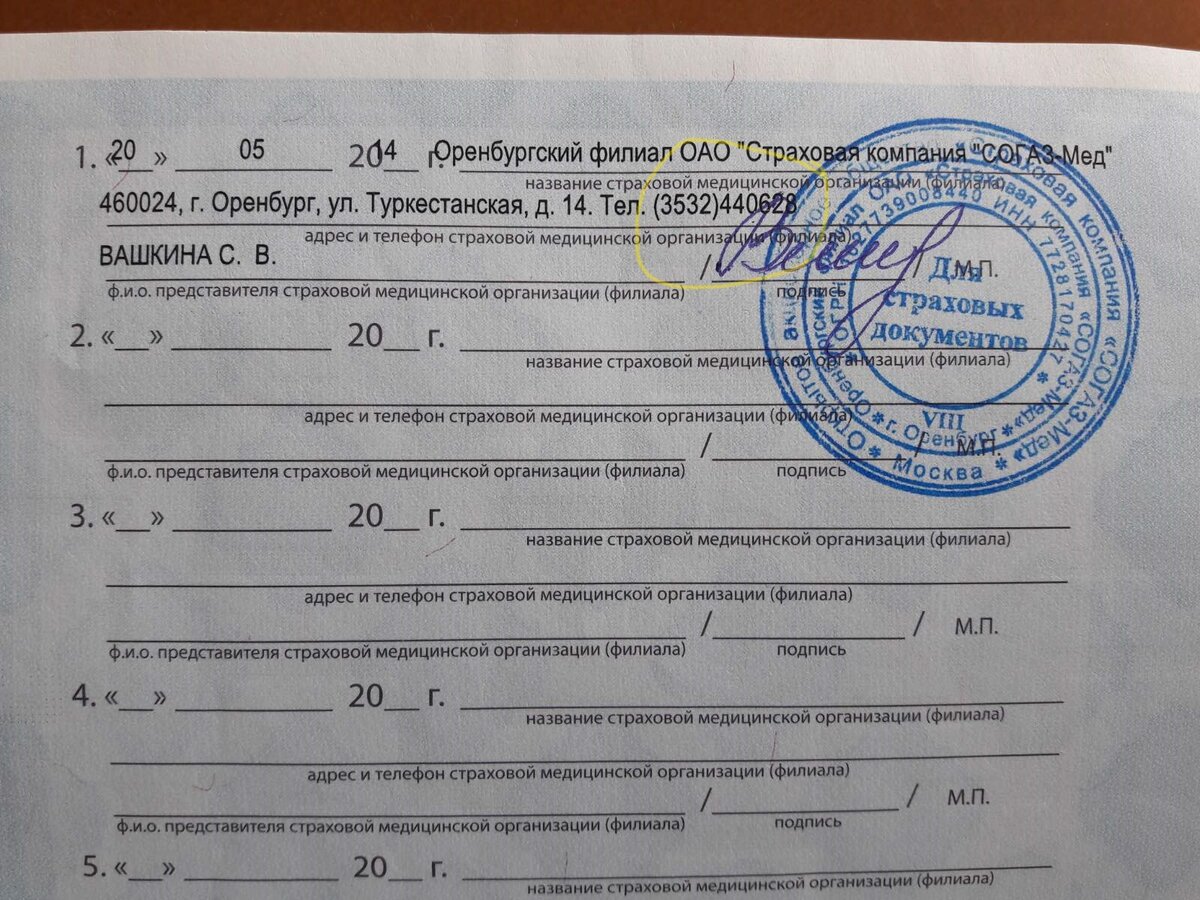 1. «20» 05 2014 г. Оренбургский филиал ОАО "Страховая компания "СОГАЗ-Мед"
название страховой медицинской организации (филиала)
460024, г. Оренбург, ул. Туркестанская, д. 14. Тел. (3532)440628
адрес и телефон страховой медицинской организации (филиала)
ВАШКИНА С. В. / / М.П.
ф.и.о. представителя страховой медицинской организации (филиала) подпись
Для
страховых
документов
VIII
г. Оренбург
Москва
«Страховая компания «СОГАЗ-Мед»
ИНН 7728170427
2. «__» ____ 20__ г.
название страховой медицинской организации (филиала)
адрес и телефон страховой медицинской организации (филиала)
/ / М.П.
ф.и.о. представителя страховой медицинской организации (филиала) подпись
3. «__» ____ 20__ г.
название страховой медицинской организации (филиала)
адрес и телефон страховой медицинской организации (филиала)
/ / М.П.
ф.и.о. представителя страховой медицинской организации (филиала) подпись
4. «__» ____ 20__ г.
название страховой медицинской организации (филиала)
адрес и телефон страховой медицинской организации (филиала)
/ / М.П.
ф.и.о. представителя страховой медицинской организации (филиала) подпись
5. «__» ____ 20__ г.
название страховой медицинской организации (филиала)